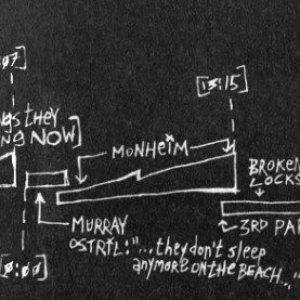 :07
[13:15]
NGS THEY
NG NOW]
MONHEIM
BROKEN
LOCKS
MURRAY
OSTRTL: "...they don't sleep
anymore on the beach..."
3RD PAR
0:00]